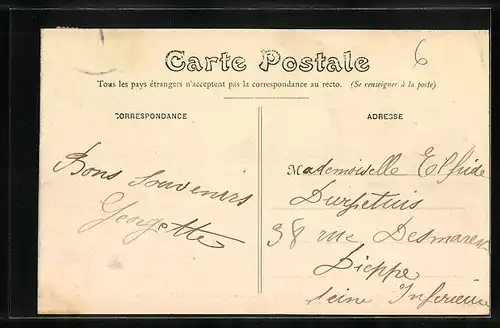 6
Carte Postale
Tous les pays étrangers n'acceptent pas la correspondance au recto. (Se renseigner à la poste)
CORRESPONDANCE
ADRESSE
Bons Souvenirs
Georgette
Mademoiselle Elfride
38 rue Desmarets
Dieppe
Seine Inferieure